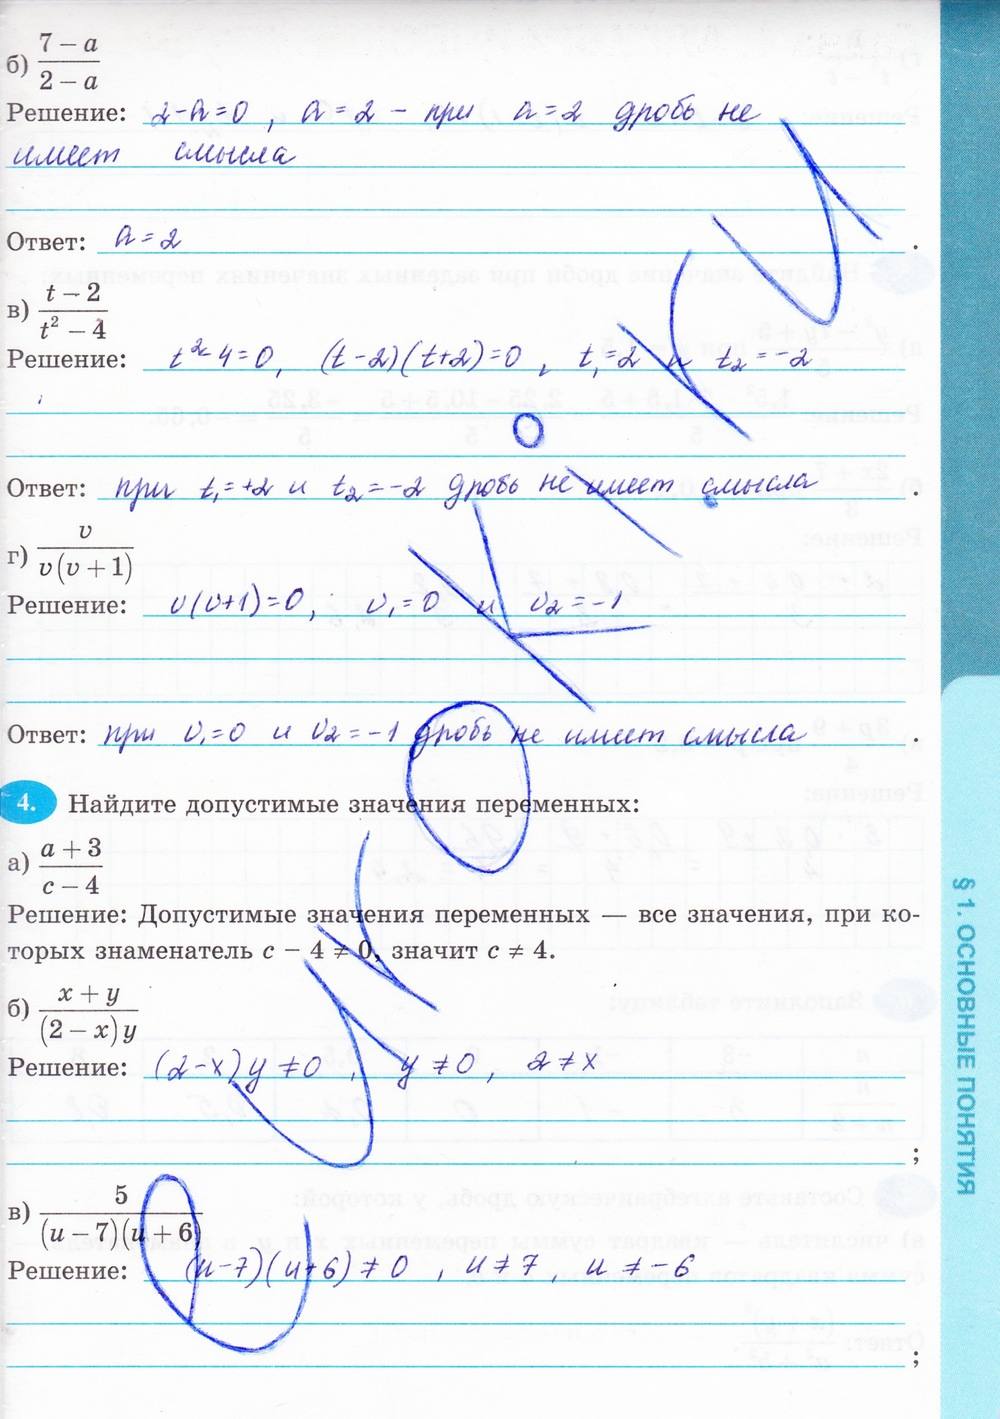 б) (7 − a)/(2 − a)
Решение: 2-a=0, a=2 - при a=2 дробь не
имеет смысла
Ответ: a=2.
в) (t − 2)/(t² − 4)
Решение: t²-4=0, (t-2)(t+2)=0, t₁=2 и t₂=-2
Ответ: при t₁=+2 и t₂=-2 дробь не имеет смысла.
г) v/(v(v + 1))
Решение: v(v+1)=0; v₁=0 и v₂=-1
Ответ: при v₁=0 и v₂=-1 дробь не имеет смысла.
4. Найдите допустимые значения переменных:
а) (a + 3)/(c − 4)
Решение: Допустимые значения переменных — все значения, при ко-
торых знаменатель c − 4 ≠ 0, значит c ≠ 4.
б) (x + y)/((2 − x)y)
Решение: (2-x)y≠0, y≠0, 2≠x
;
в) 5/((u − 7)(u + 6))
Решение: (u-7)(u+6)≠0, u≠7, u≠-6
;
§ 1. ОСНОВНЫЕ ПОНЯТИЯ